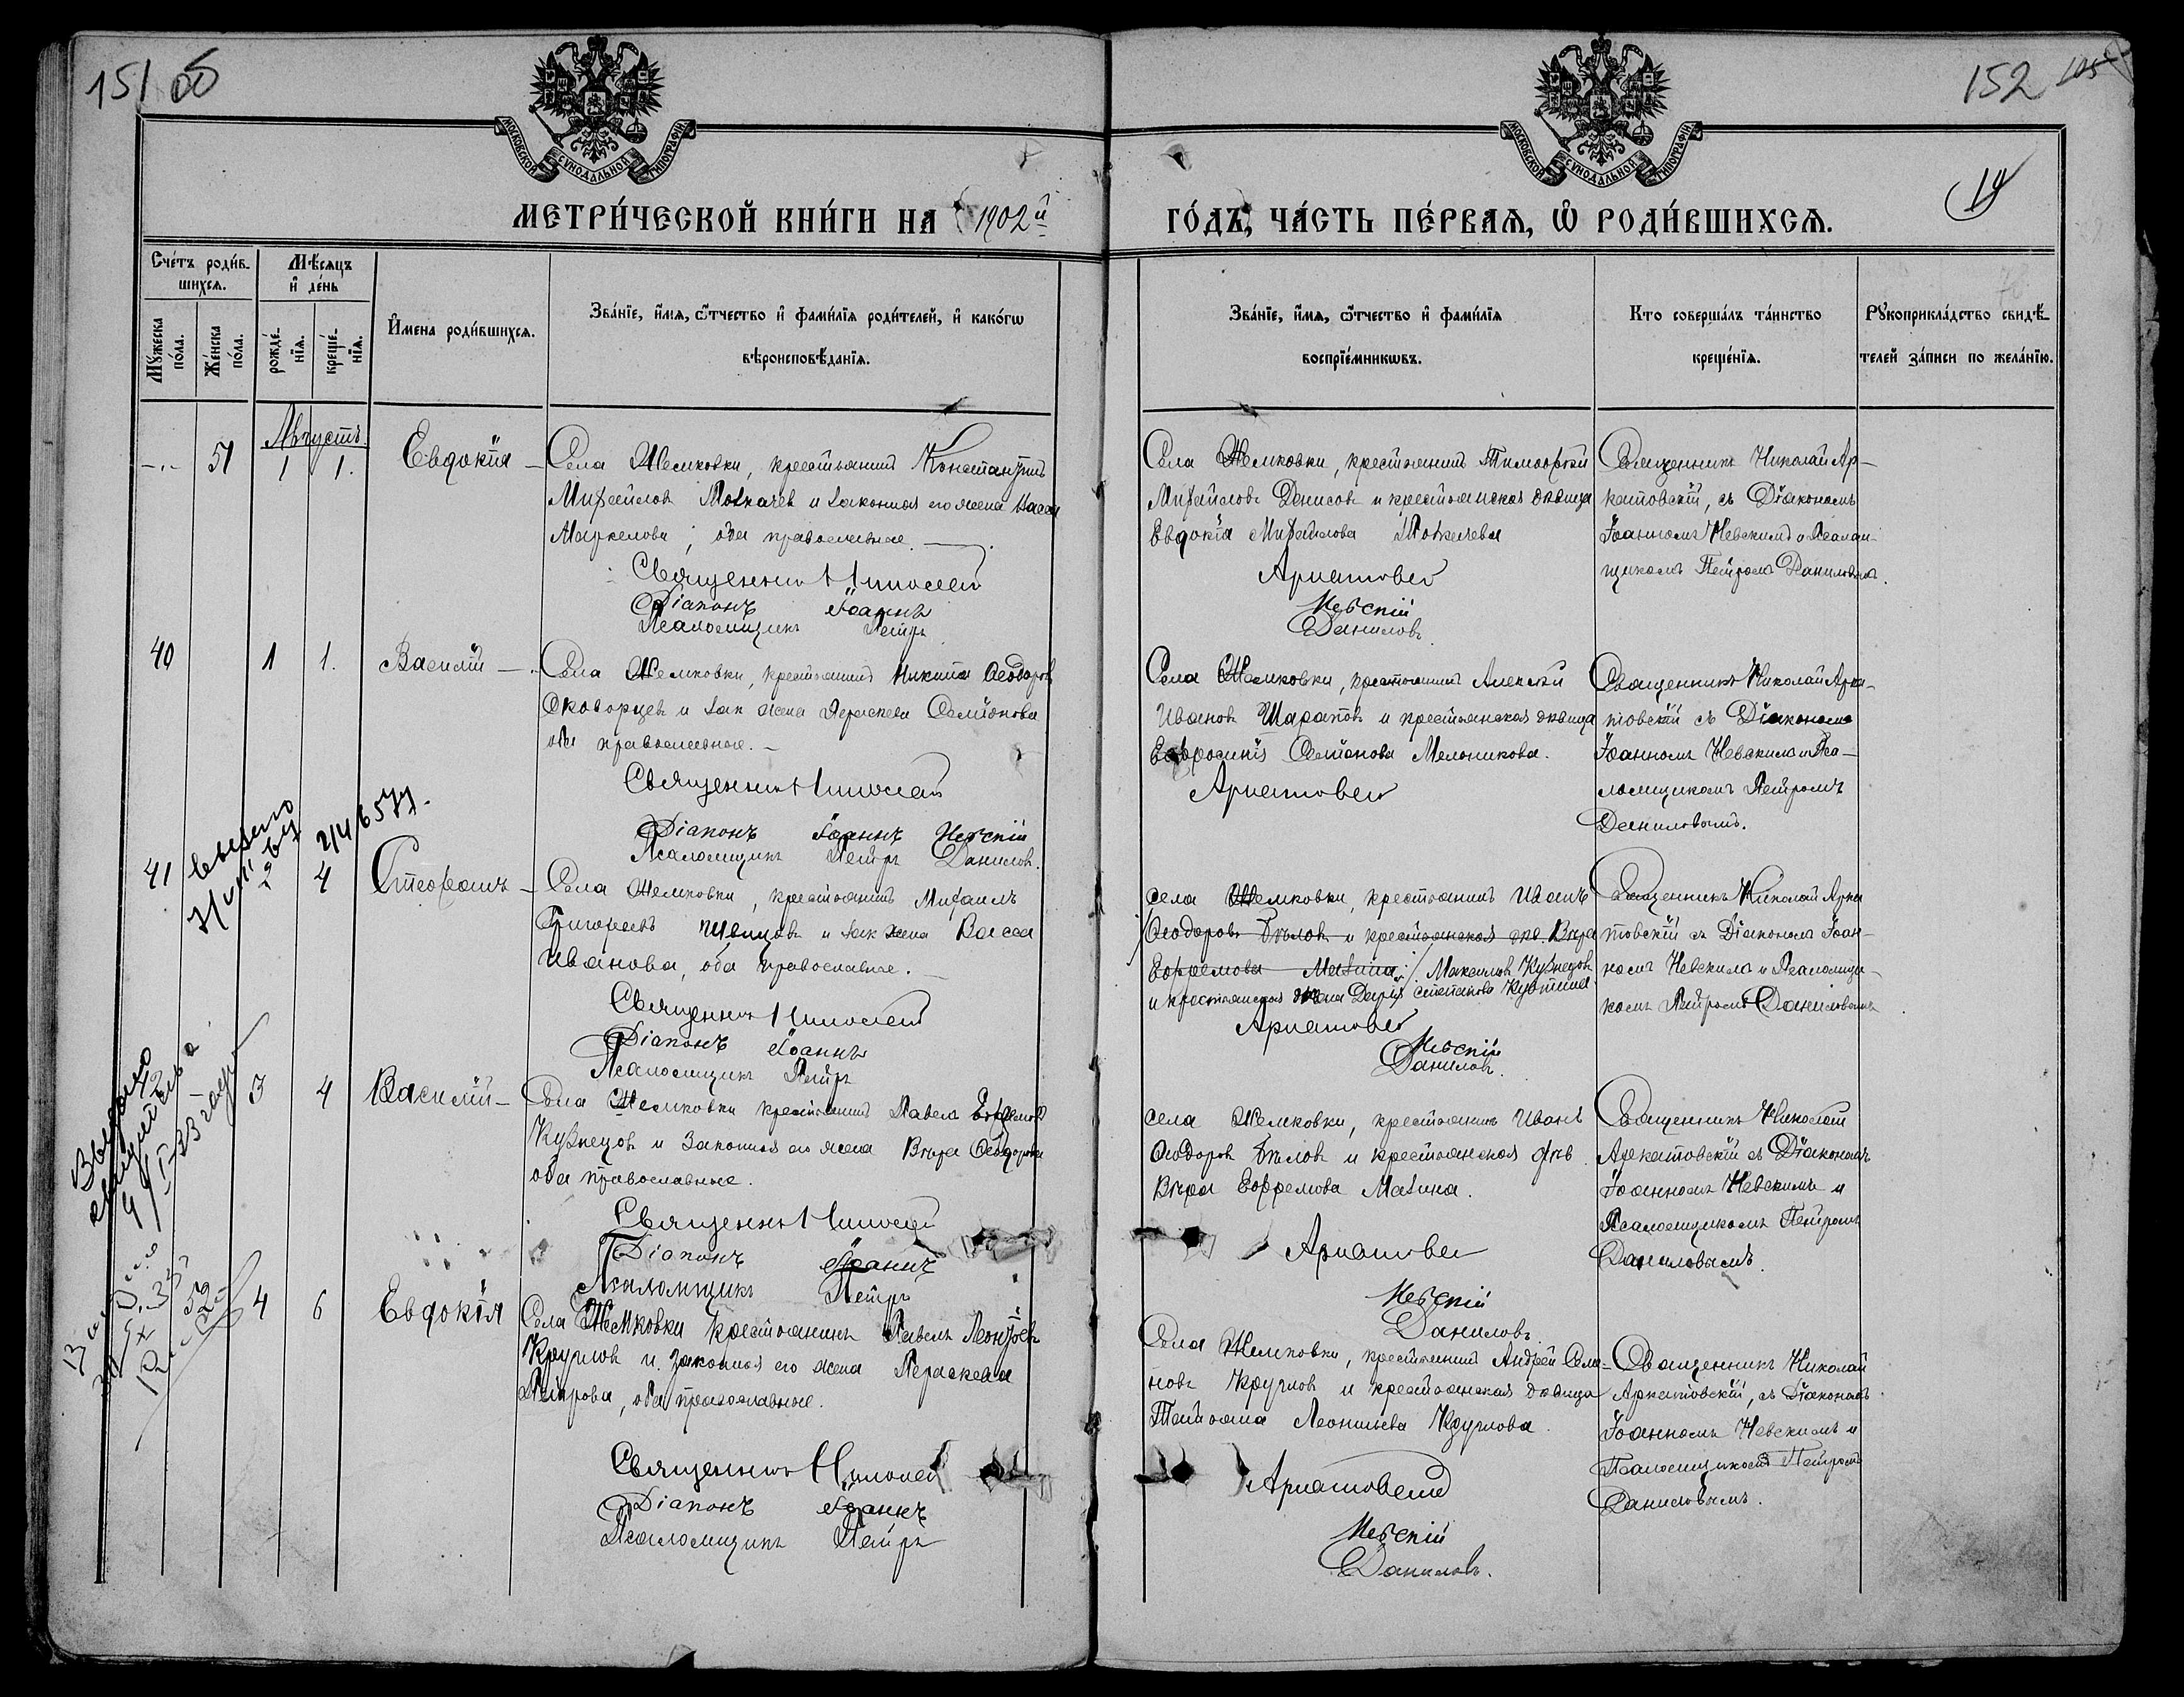 151 об
152
105
19
МОСКОВСКОЙ СѴНОДАЛЬНОЙ ТИПОГРАФІИ
МОСКОВСКОЙ СѴНОДАЛЬНОЙ ТИПОГРАФІИ
МЕТРИ́ЧЕСКОЙ КНИ́ГИ НА 1902й
ГО́ДЪ, ЧА́СТЬ ПЕ́РВАѦ, Ѡ҆ РОДИ́ВШИХСѦ.
Сче́тъ роди́в-
шихсѧ.
Мѣ́сѧцъ
и҆ де́нь
Мꙋ́жеска
по́ла.
Же́нска
по́ла.
рожде́-
нїѧ.
креще́-
нїѧ.
И҆мена роди́вшихсѧ.
Зва́нїе, и҆́мѧ, ѻ҆́тчество и҆ фами́лїѧ роди́телей, и҆ како́гѡ
вѣроисповѣ́данїѧ.
Зва́нїе, и҆́мѧ, ѻ҆́тчество и҆ фами́лїѧ
воспрїе́мникѡвъ.
Кто соверша́лъ та́инство
креще́нїѧ.
Рꙋкоприкла́дство свидѣ́-
телей за́писи по жела́нїю.
Августъ.
51
1
1.
Евдокія
Села Жемковки, крестьянинъ Константинъ
Михайловъ Толкачев и законная его жена
Маркелова, оба православные.
Священникъ Николай
Діаконъ Іоаннъ
Псаломщикъ Петръ
Села Жемковки, крестьянинъ Тимофей
Михайловъ Денисовъ и крестьянская дѣвица
Евдокія Михайлова Толкачева
Аркатовскій
Невскій
Даниловъ.
Священникъ Николай Ар-
катовскій, съ Діакономъ
Іоанномъ Невскимъ и Псалом-
щикомъ Петромъ Даниловымъ.
40
1
1.
Василій
Села Жемковки, крестьянинъ Никита Ѳеодоровъ
Скоборцев и зак жена Параскева Семіонова
оба православные.
Священникъ Николай
Діаконъ Іоаннъ Невскій
Псаломщикъ Петръ Даниловъ.
Села Жемковки, крестьянинъ Алексѣй
Ивановъ Шараповъ и крестьянская дѣвица
Евфросинія Семіонова Мельникова.
Аркатовскій
Священникъ Николай Арка-
товскій съ Діакономъ
Іоанномъ Невскимъ и Пса-
ломщикомъ Петромъ
Даниловымъ.
41
4
Стефанъ
Села Жемковки, крестьянинъ Михаилъ
Григорьевъ Швецовъ и зак жена Васса
Иванова, оба православные.
Священникъ Николай
Діаконъ Іоаннъ
Псаломщикъ Петръ
села Жемковки, крестьянинъ Иванъ
Ѳеодоровъ Бѣловъ и крестьянская дѣв. Вѣра
Ефремова Мазина / Максимовъ Кузнецовъ
и крестьянская жена Дарія Степанова
Аркатовскій
Невскій
Даниловъ.
Священникъ Николай Арка
товскій съ Діакономъ Іоан-
номъ Невскимъ и Псаломщи-
комъ Петромъ Даниловымъ
42
3
4
Василій
Села Жемковки крестьянинъ Павелъ Ефремовъ
Кузнецовъ и Законная его жена Вѣра Ѳеодорова
оба православные.
Священникъ Николай
Діаконъ Іоаннъ
Псаломщикъ Петръ
села Жемковки, крестьянинъ Иванъ
Ѳеодоровъ Бѣловъ и крестьянская дѣв.
Вѣра Ефремова Мазина.
Аркатовскій
Невскій
Даниловъ.
Священникъ Николай
Аркатовскій съ Діакономъ
Іоанномъ Невскимъ и
Псаломщикомъ Петромъ
Даниловымъ.
52
4
6
Евдокія
Села Жемковки крестьянинъ Павелъ Леонтьевъ
Кругловъ и законная его жена Параскева
Петрова, оба православные.
Священникъ Николай
Діаконъ Іоаннъ
Псаломщикъ Петръ
Села Жемковки, крестьянинъ Андрей Семе-
новъ Кругловъ и крестьянская дѣвица
Татіана Леонтьева Круглова.
Аркатовскій
Невскій
Даниловъ.
Священникъ Николай
Аркатовскій, съ Діакономъ
Іоанномъ Невскимъ и
Псаломщикомъ Петромъ
Даниловымъ.